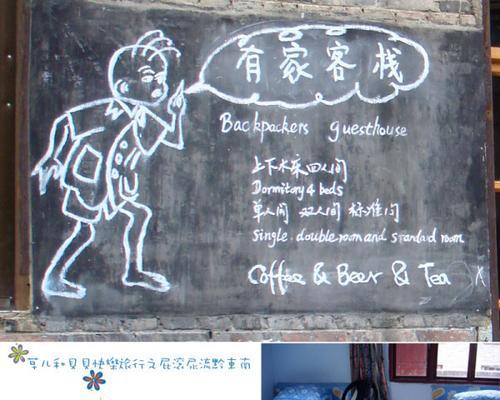 有家客栈
Backpackers guesthouse
上下木床四人间
Dormitory 4 beds
单人间 双人间 标准间
Single. double room and standard room
Coffee & Beer & Tea
草儿和貝貝快樂旅行之屁滾尿流黔東南